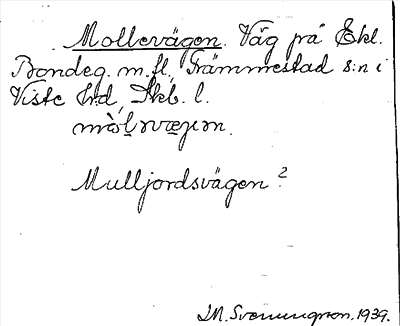 Mollevägen. Väg på Ekl.
Bondeg. m. fl., Främmestad s:n i
Viste hd, Skb. l.
mòl̥nvæ̣gɩm.
Mulljordsvägen?
I.M. Svenungson. 1939.